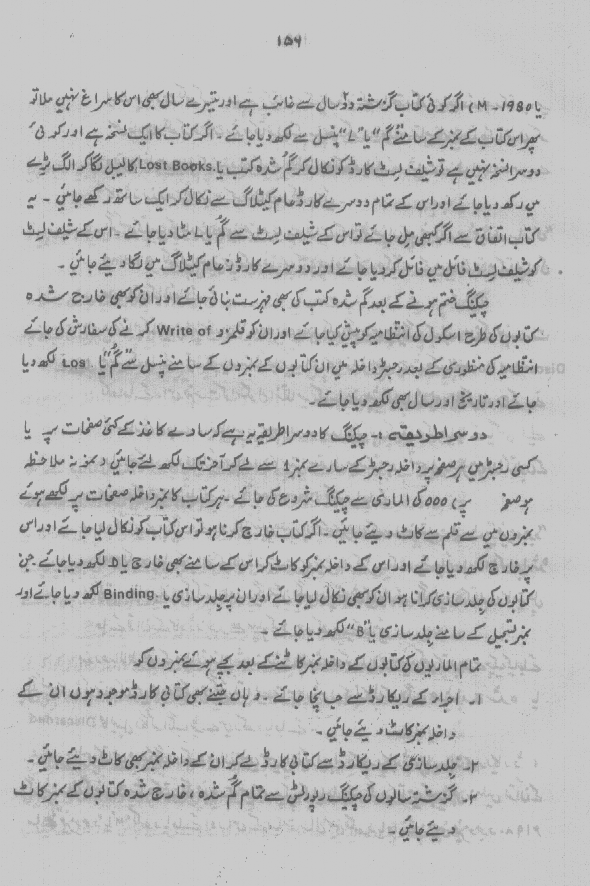 ۱۵۶
یا 1980-M) اگر کوئی کتاب گزشتہ دو سال سے غائب ہے اور تیسرے سال بھی اس کا سراغ نہیں ملا تو
پھر اس کتاب کے نمبر کے سامنے "گم" یا "L" پنسل سے لکھ دیا جائے۔ اگر کتاب کا ایک نسخہ ہے اور کوئی
دوسرا نسخہ نہیں ہے تو شیلف لسٹ کارڈ کو نکال کر گم شدہ کتب یا Lost Books. کا لیبل لگا کر الگ ٹرے
میں رکھ دیا جائے اور اس کے تمام دوسرے کارڈ عام کیٹلاگ سے نکال کر ایک ساتھ رکھے جائیں۔ یہ
کتاب اتفاق سے اگر کبھی مل جائے تو اس کے شیلف لسٹ سے گم یا L مٹا دیا جائے۔ اس کے شیلف لسٹ
کو شیلف لسٹ فائل میں فائل کر دیا جائے اور دوسرے کارڈز عام کیٹلاگ میں لگا دیئے جائیں۔
چیکنگ ختم ہونے کے بعد گم شدہ کتب کی بھی فہرست بنائی جائے اور ان کو بھی خارج شدہ
کتابوں کی طرح اسکول کی انتظامیہ کو پیش کیا جائے اور ان کو قلمزد Write of کرنے کی سفارش کی جائے
انتظامیہ کی منظوری کے بعد رجسٹر داخلہ میں ان کتابوں کے نمبروں کے سامنے پنسل سے "گم" یا Los. لکھ دیا
جائے اور تاریخ اور سال بھی لکھ دیا جائے۔
دوسرا طریقہ :۔ چیکنگ کا دوسرا طریقہ یہ ہے کہ سادے کاغذ کے کئی صفحات پر یا
کسی رجسٹر میں ہر صفحہ پر داخلہ رجسٹر کے سارے نمبر 1 سے لے کر آخر تک لکھ لئے جائیں (نمونہ ملاحظہ
ہو صفحہ پر) 000 کی الماری سے چیکنگ شروع کی جائے۔ ہر کتاب کا نمبر داخلہ صفحات پر لکھے ہوئے
نمبروں میں سے قلم سے کاٹ دیئے جائیں۔ اگر کتاب خارج کرنا ہو تو اس کتاب کو نکال لیا جائے اور اس
پر خارج لکھ دیا جائے اور اس کے داخلہ نمبر کو کاٹ کر اس کے سامنے بھی خارج یا D لکھ دیا جائے۔ جن
کتابوں کی جلد سازی کرانا ہو ان کو بھی نکال لیا جائے اور ان پر جلد سازی یا Binding. لکھ دیا جائے اور
نمبر تسجیل کے سامنے جلد سازی یا "B" لکھ دیا جائے۔
تمام الماریوں کی کتابوں کے داخلہ نمبر کاٹنے کے بعد بچے ہوئے نمبروں کو
۱۔ اجراء کے ریکارڈ سے جانچا جائے۔ وہاں جتنے بھی کتابی کارڈ موجود ہوں ان کے
داخلہ نمبر کاٹ دیئے جائیں۔
۲۔ جلد سازی کے ریکارڈ سے کتابی کارڈ لے کر ان کے داخلہ نمبر بھی کاٹ دیئے جائیں۔
۳۔ گزشتہ سالوں کی چیکنگ رپورٹس سے تمام گم شدہ، خارج شدہ کتابوں کے نمبر کاٹ
دیئے جائیں۔